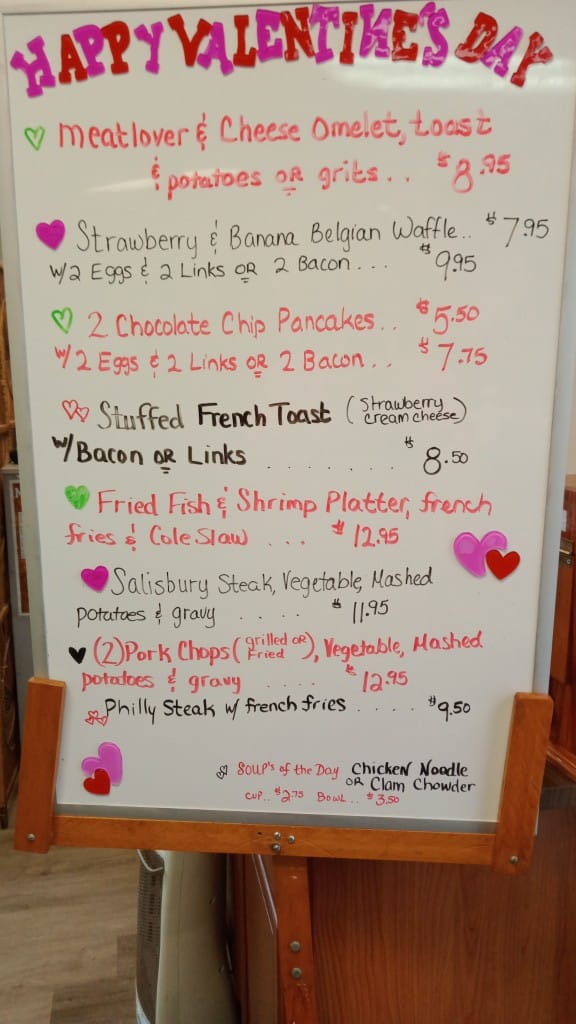 HAPPY VALENTINE'S DAY
Meatlover & Cheese Omelet, toast
& potatoes OR grits.. $8.95
Strawberry & Banana Belgian Waffle.. $7.95
w/2 Eggs & 2 Links OR 2 Bacon... $9.95
2 Chocolate Chip Pancakes.. $5.50
w/2 Eggs & 2 Links OR 2 Bacon.. $7.75
Stuffed French Toast (Strawberry cream cheese)
w/Bacon OR Links ....... $8.50
Fried Fish & Shrimp Platter, french
fries & Cole Slaw ... $12.95
Salisbury Steak, Vegetable, Mashed
potatoes & gravy .... $11.95
(2) Pork Chops (grilled OR Fried), Vegetable, Mashed
potatoes & gravy .... $12.95
Philly Steak w/ french fries .... $9.50
Soup's of the Day Chicken Noodle
OR Clam Chowder
Cup.. $2.75 Bowl.. $3.50